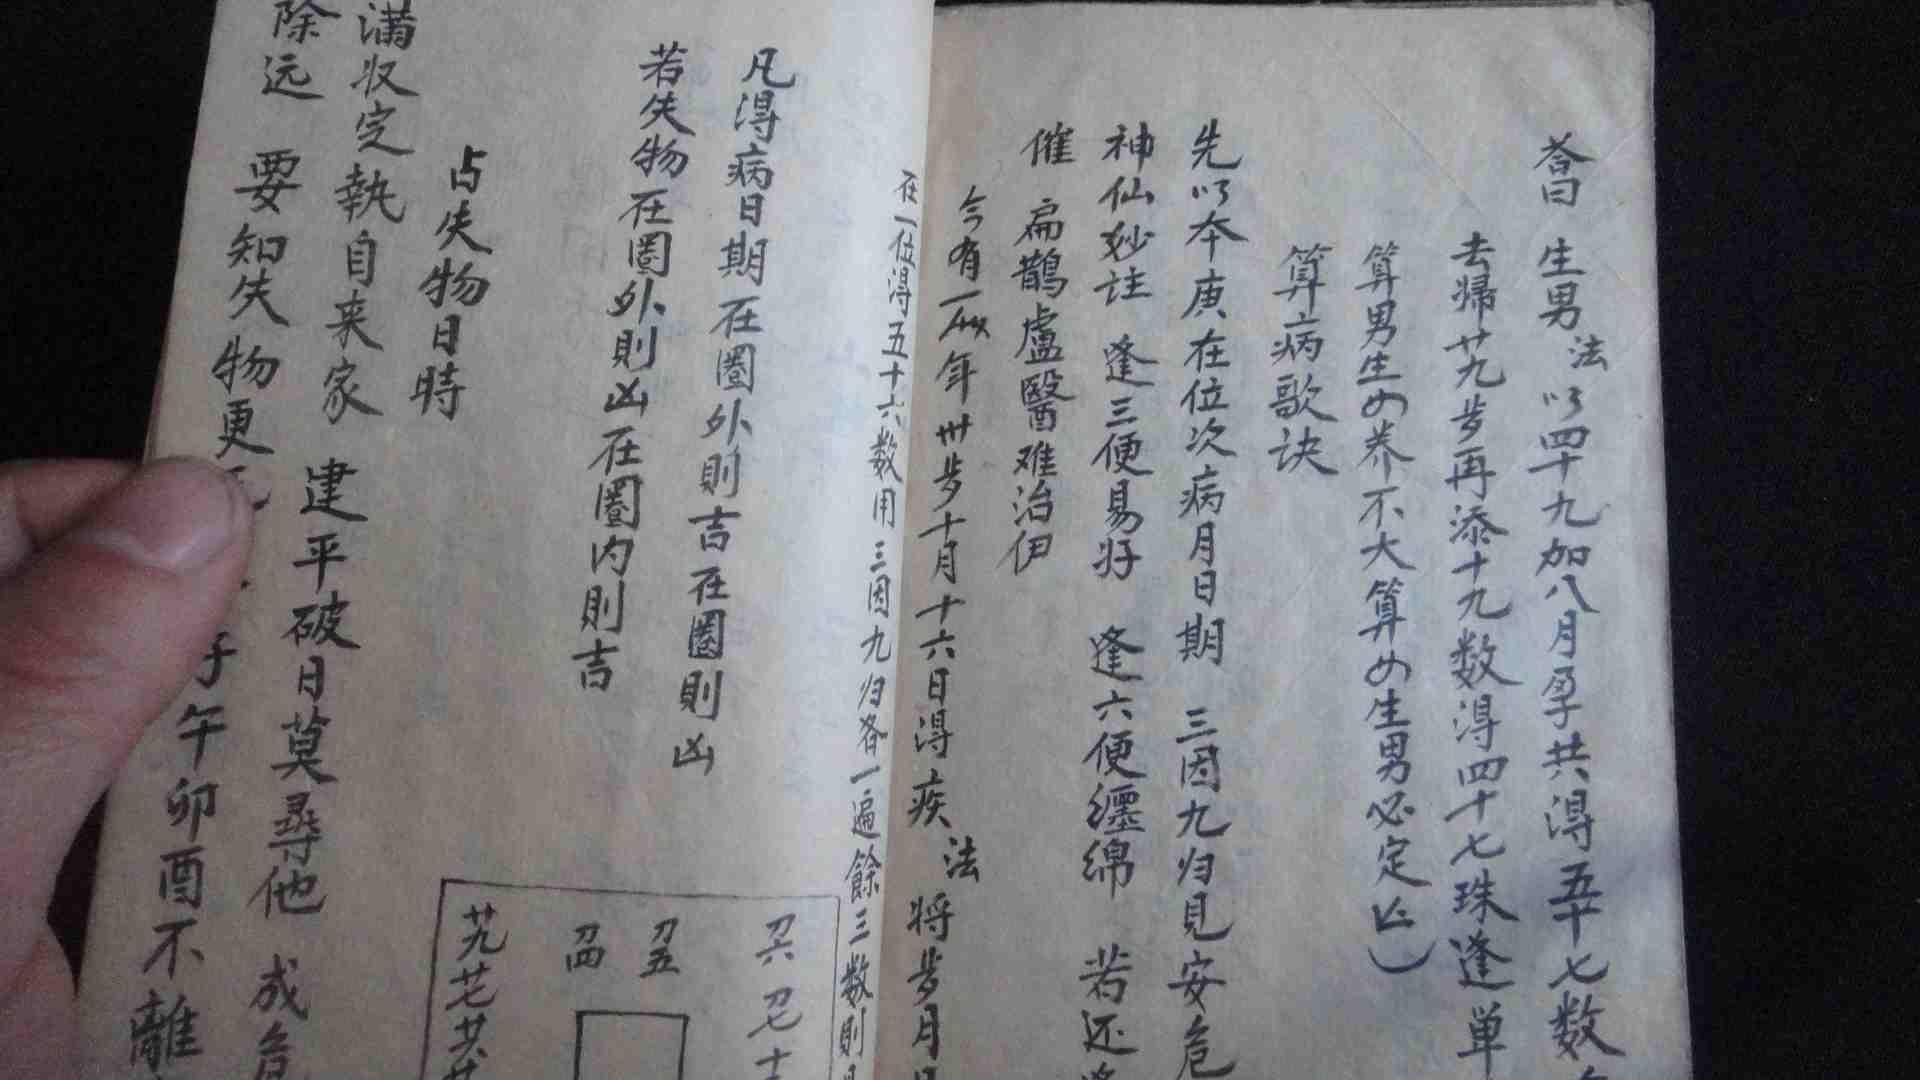 荅曰 生男 法 以四十九加八月孕共得五十七数
去帰廿九岁再添十九数得四十七珠逢单
算男生女养不大算女生男必定亡
算病歌诀
先以本庚在位次病月日期 三因九归見安危
神仙妙註 逢三便易好 逢六便纏綿 若还
催 扁鵲盧醫难治伊
今有一人 年卅岁十月十六日得疾 法 将岁月日
在一位得五十六数用三因九归各一遍餘三数則
凡得病日期在圈外則吉在圈則凶
若失物在圈外則凶在圈内則吉
刀六 刀七
刀五
刀四
廿九 廿七 廿
占失物日時
满收定執自来家 建平破日莫尋他 成危
除远 要知失物更 子午卯酉不離